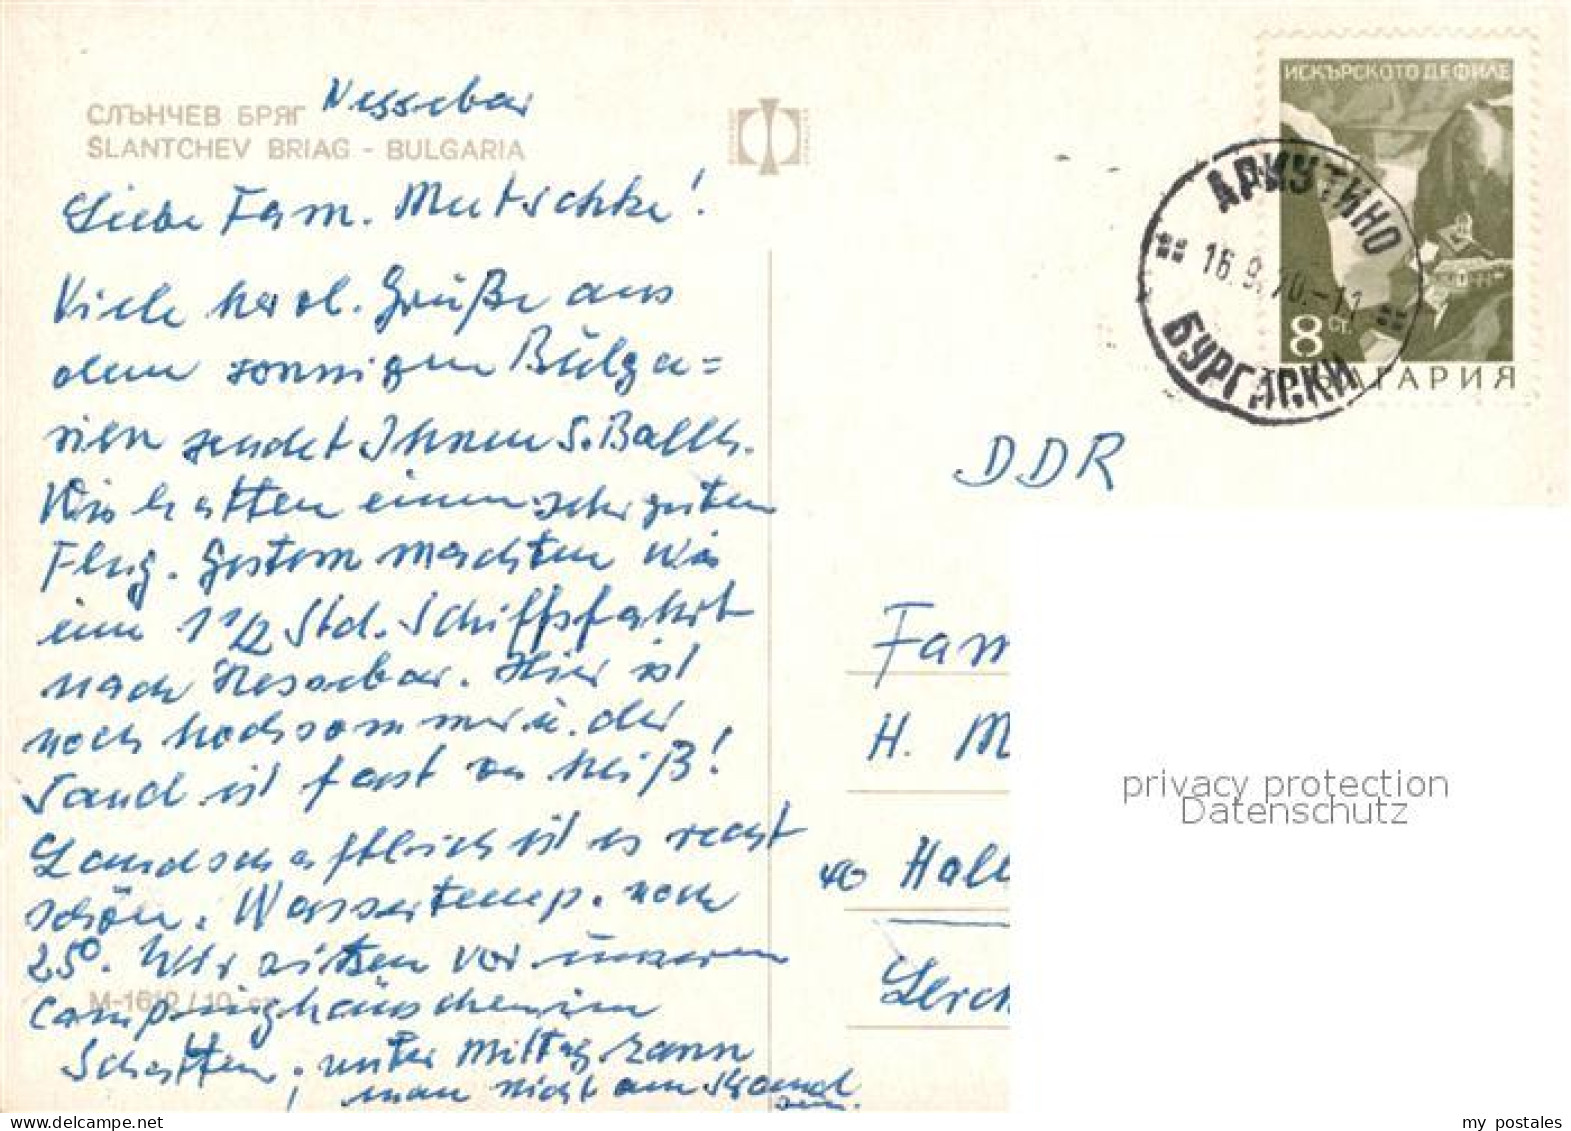 СЛЪНЧЕВ БРЯГ Nessebar
SLANTCHEV BRIAG - BULGARIA
Liebe Fam. Mutschke!
Viele herzl. Grüße aus
dem sonnigen Bulga=
rien sendet Ihnen S. Balth.
Wir hatten einen sehr guten
Flug. Gestern machten wir
eine 1 1/2 Std. Schiffsfahrt
nach Nessebar. Hier ist
noch Hochsommer u. der
Sand ist fast zu heiß!
Landschaftlich ist es recht
schön. Wassertemp. noch
25°. Wir sitzen vor unserem
Campinghäuschen im
Schatten, unter Mittag kann
man nicht am Strand
sein.
М-1612/10 ст.
ИСКЪРСКОТО ДЕФИЛЕ
8 СТ.
БЪЛГАРИЯ
АРКУТИНО
16.9.70.-11
БУРГАСКИ
DDR
Fam
H. M
40 Hall
Lerch
privacy protection
Datenschutz
my postales
www.delcampe.net